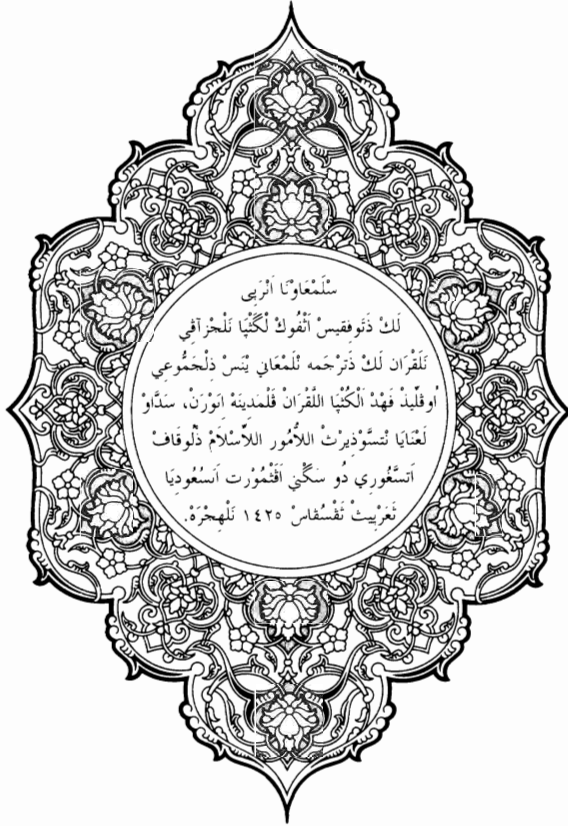 سْلَمْعَاوْنَا اَنْرَبِّي
لَكْ ذَتَوفقيسْ اَثْفُوكْ لْكَتْبَا نَلْجْزْآفي
نَلَقْرَان لَكْ ذَتَرْجَمه نْلَمْعَاني يْنَسْ ذِلْجَمُّوعي
اُوقَلّيذْ فَهْدْ اَلْكُتْبَا اللَّقْرَانْ قَلْمَدينَهْ اِنَوْرَنْ، سَدَّاوْ
لَعْنَايَا نْتسَّوْذيرْثْ اللاُّمُور اللاّسْلاَمْ ذْلَوقَافْ
اَتسَّغُوري دُو سَكَّنيْ اَقْثْمُورْت اَتسُعُوديَا
ثَعْرَبيثْ ثَقْسُقَاسْ ١٤٢٥ نَلْهِجْرَهْ.